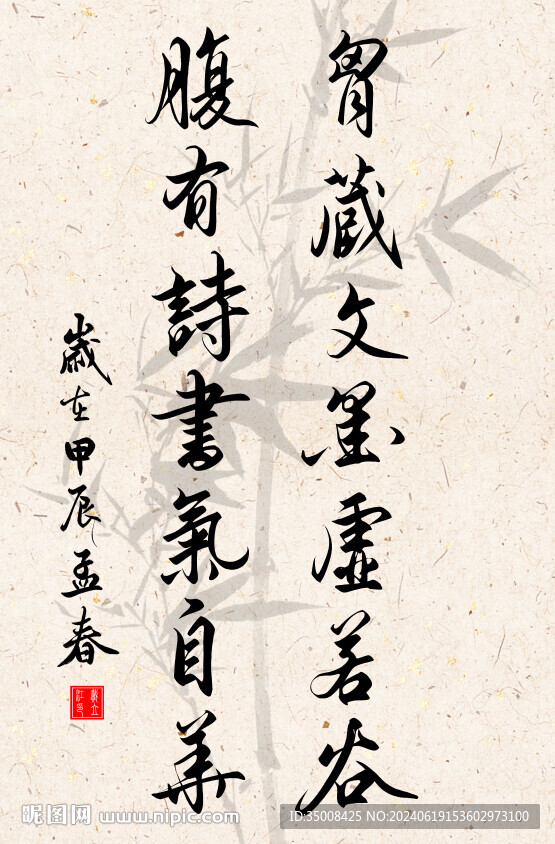 胷藏文墨虛若谷
腹有詩書氣自華
歲在甲辰孟春
昵图网 www.nipic.com
ID:35008425 NO:20240619153602973100